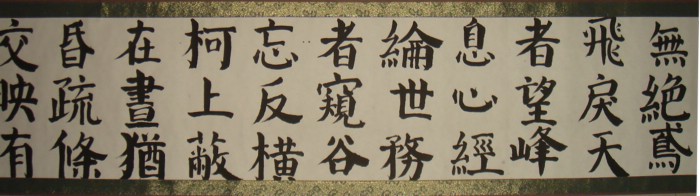 無絶鳶
飛戾天
者望峰
息心經
綸世務
者窺谷
忘反橫
柯上蔽
在晝猶
昏疏條
交映有